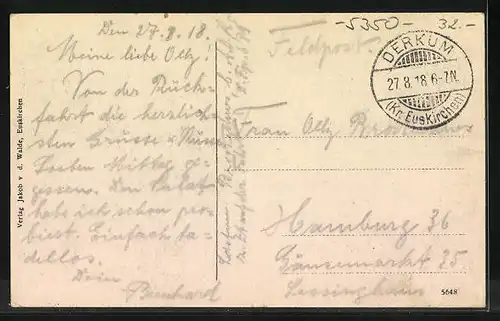 -5350- 32.-
Den 27.8.18.
Meine liebe Olly!
Von der Rück-
fahrt die herzlich-
sten Grüsse u. Küsse.
Soeben Mittag ge-
gessen. Den Salat
habe ich schon pro-
biert. Einfach ta-
dellos.
Dein
Bernhard
Verlag Jakob v. d. Walde, Euskirchen
Feldpost
DERKUM
27.8.18.6-7N.
(Kr. Euskirchen)
Frau Olly
Hamburg 36
Gänsemarkt 35
Lessinghaus
5648